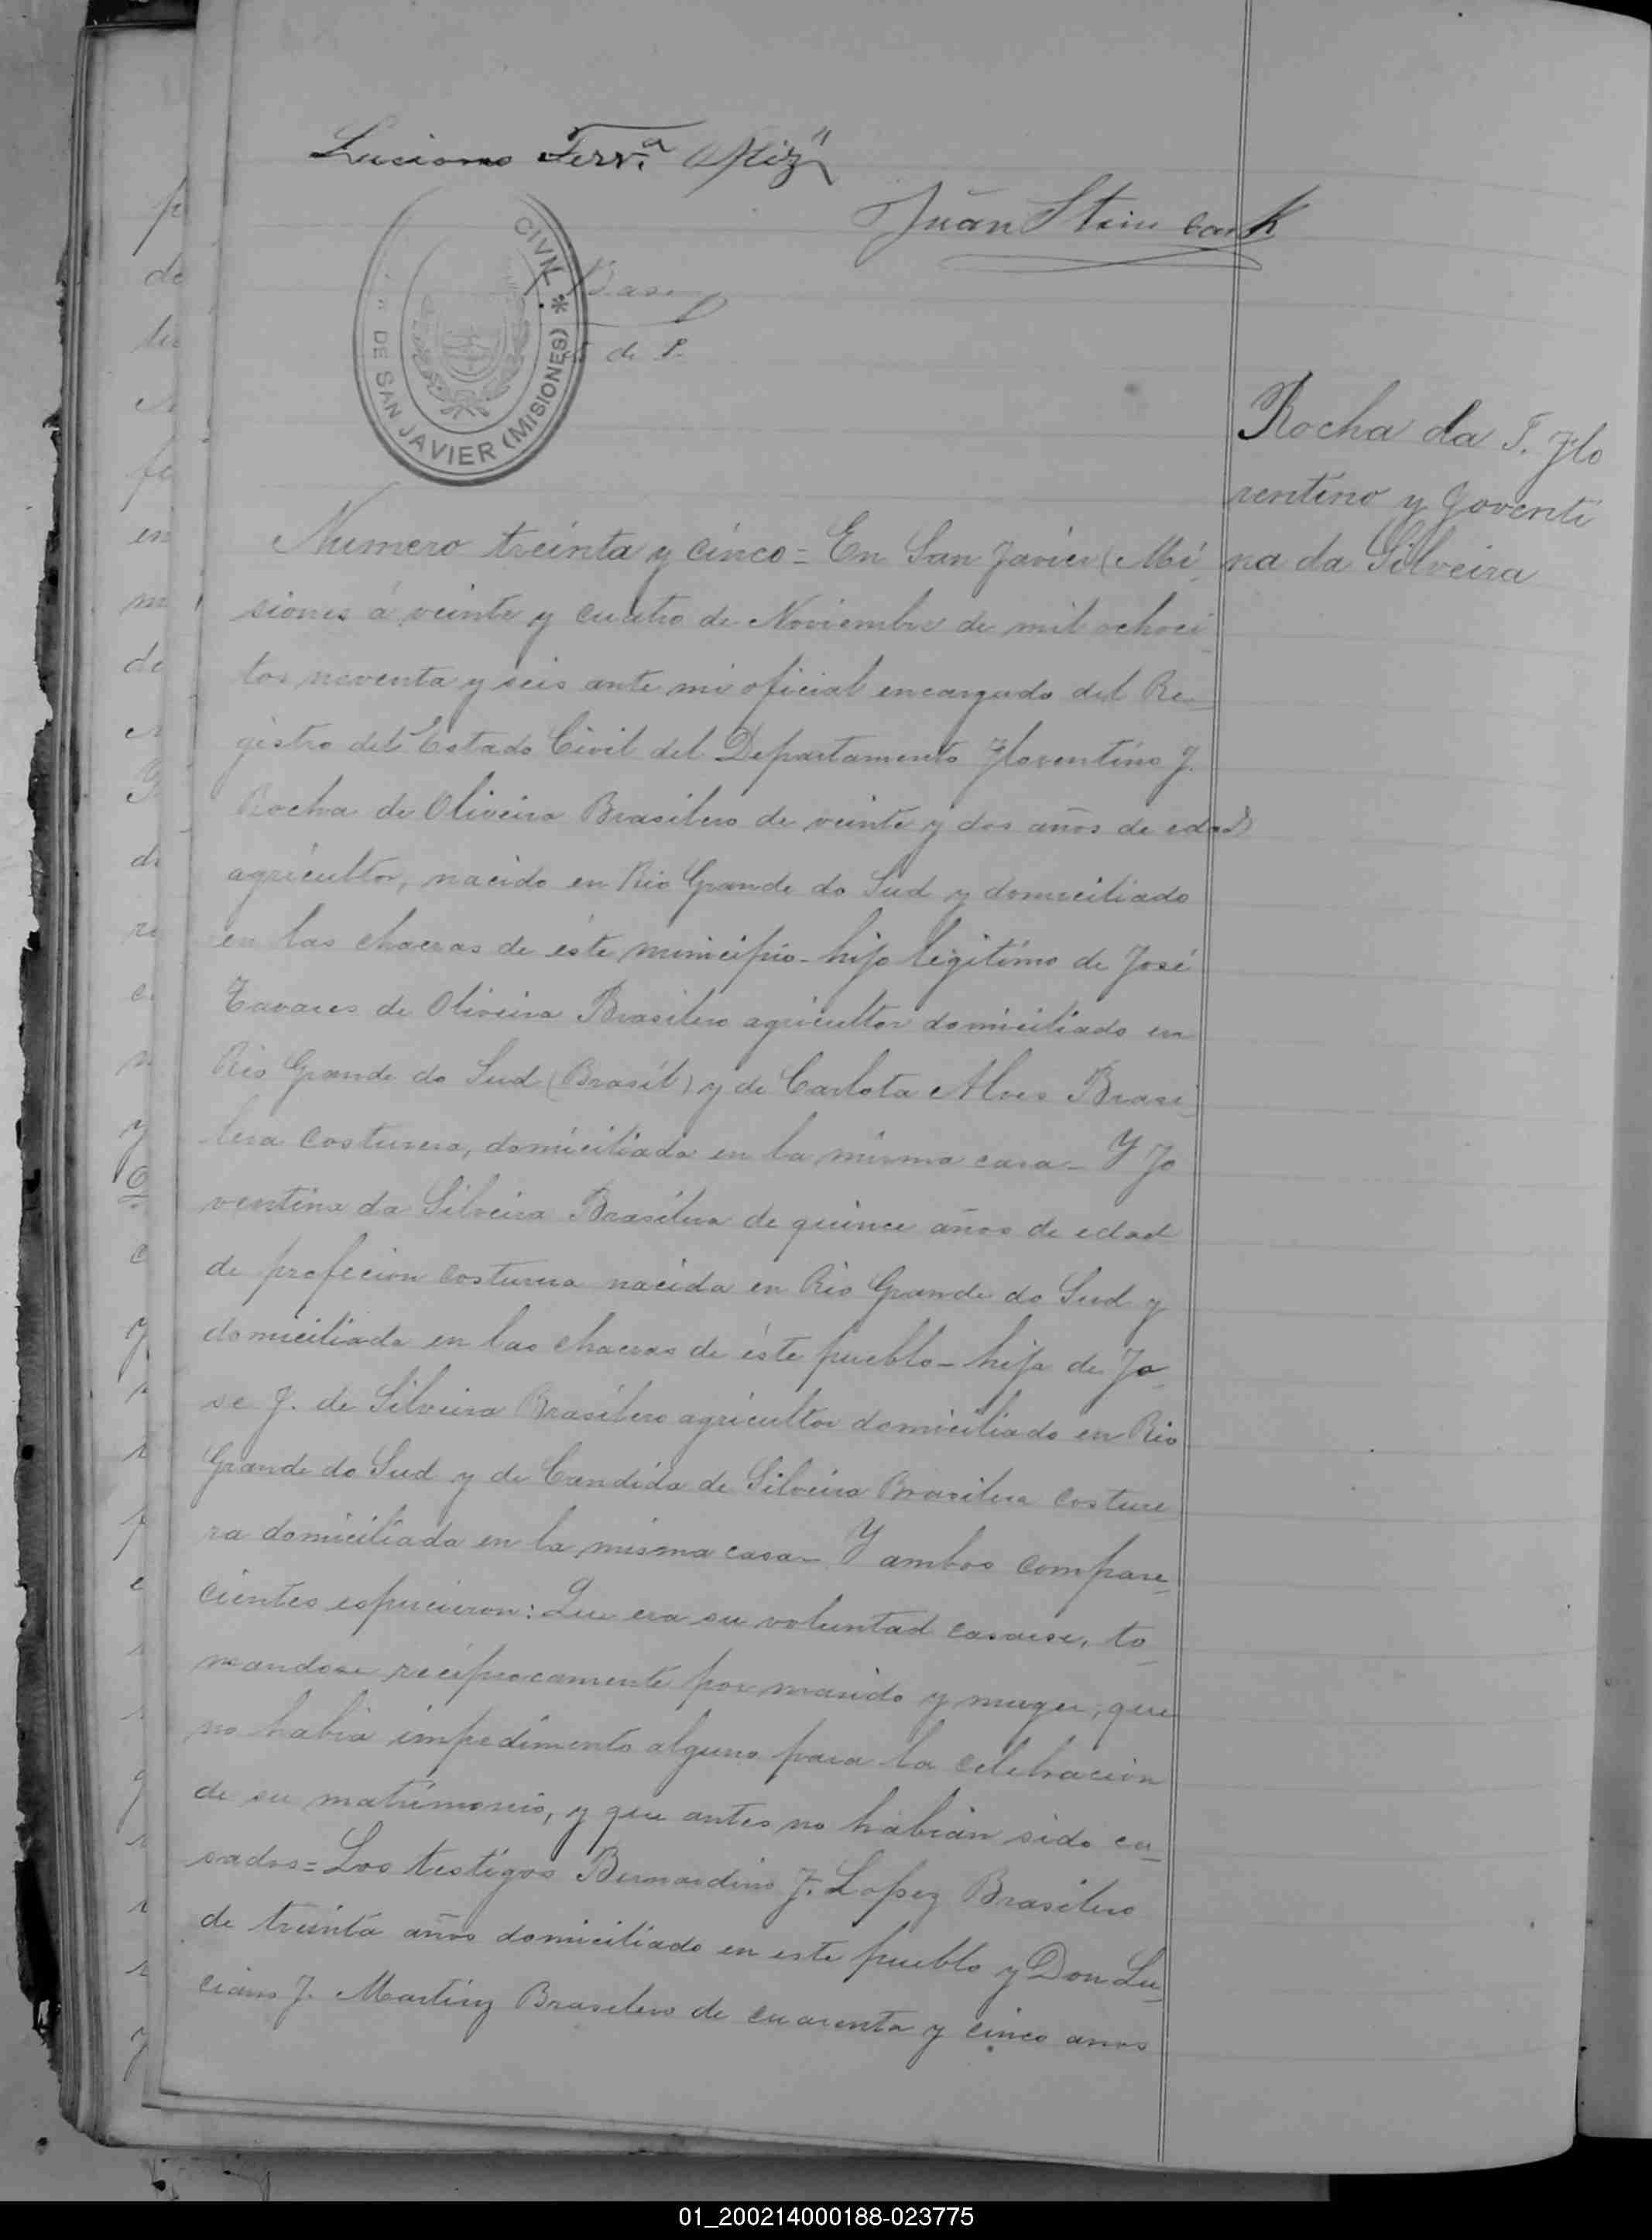 Luciano Ferra
Juan Steinback
CIVIL * DE SAN JAVIER (MISIONES)
de P.
Rocha da F. Flo
rentino y Joventi
na da Silveira
Numero treinta y cinco = En San Javier (Mi
siones á veinte y cuatro de Noviembre de mil ochoci
tos noventa y seis ante mi oficial encargado del Re_
gistro del Estado Civil del Departamento Florentino J.
Rocha de Oliveira Brasilero de veinte y dos años de edad
agricultor, nacido en Rio Grande do Sud y domiciliado
en las chacras de éste municipio - hijo legitimo de José
Tavares de Oliveira Brasilero agricultor domiciliado en
Rio Grande do Sud (Brasil) y de Carlota Alves Brasi_
lera costurera, domiciliada en la misma casa - Y Jo
ventina da Silveira Brasilera de quince años de edad
de profecion costurera nacida en Rio Grande do Sud y
domiciliada en las chacras de éste pueblo - hija de Jo_
se J. de Silveira Brasilero agricultor domiciliado en Rio
Grande do Sud y de Candida de Silveira Brasilera costure
ra domiciliada en la misma casa - Y ambos compare_
cientes espucieron: Que era su voluntad casarse, to_
mandose reciprocamente por marido y muger, que
no habia impedimento alguno para la celebracion
de su matrimonio, y que antes no habian sido ca_
sados = Los testigos Bernardino J. Lopez Brasilero
de treinta años domiciliado en este pueblo y Don Lu_
ciano J. Martinz Brasilero de cuarenta y cinco anos
01_200214000188-023775